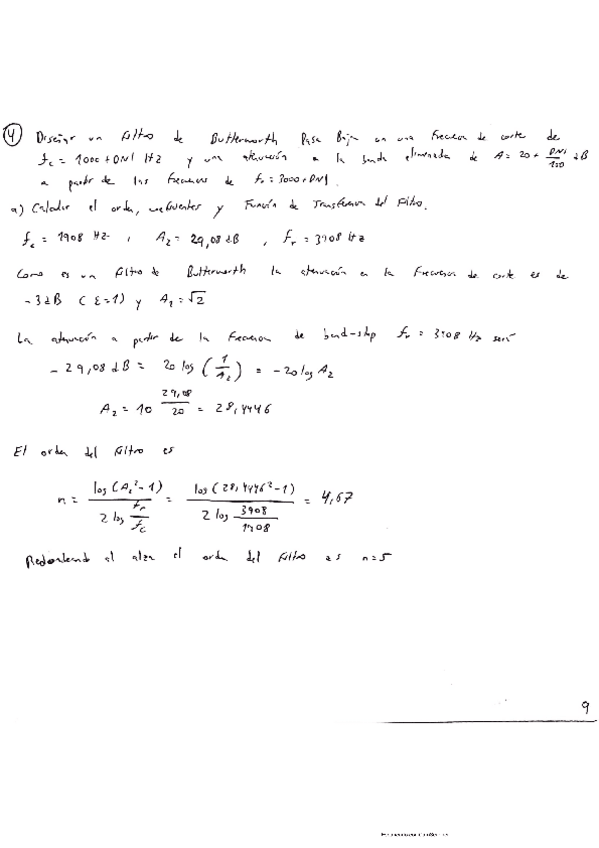 4 Diseñar un Filtro de Butterworth Pasa Bajo con una frecuencia de corte de
fc = 1000 + DNI Hz y una atenuación a la banda eliminada de A = 20 + DNI/100 dB
a partir de las frecuencias de fr = 3000 + DNI.
a) Calcular el orden, coeficientes y Función de Transferencia del Filtro.
fc = 1908 Hz , A2 = 29,08 dB , fr = 3908 Hz
Como es un Filtro de Butterworth la atenuación en la frecuencia de corte es de
-3dB (ε=1) y A2 = √2
La atenuación a partir de la frecuencia de band-stop fr = 3908 Hz será
- 29,08 dB = 20 log (1/A2) = -20 log A2
A2 = 10 29,08/20 = 28,4446
El orden del Filtro es
n = log (A2² - 1) / 2 log fr/fc = log (28,4446² - 1) / 2 log 3908/1908 = 4,67
Redondeando al alza el orden del Filtro es n=5
9